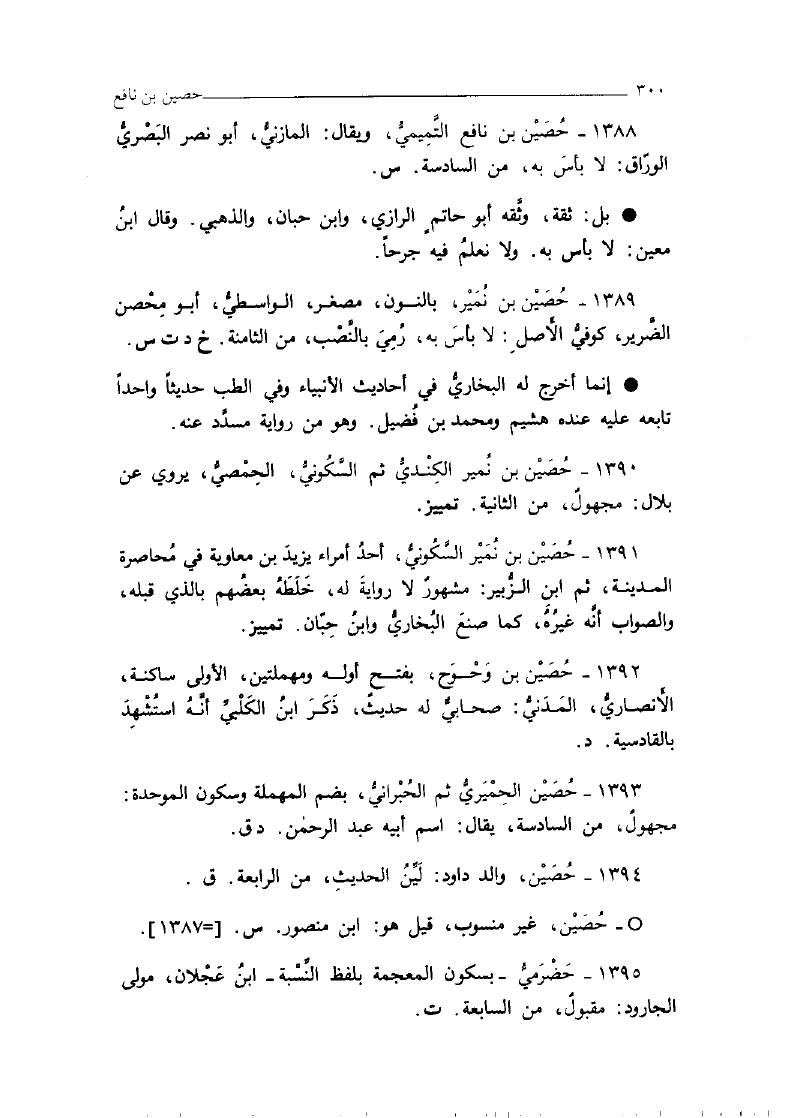 ٣٠٠ حصين بن نافع
١٣٨٨ ـ حُصَيْن بن نافع التَّمِيميُّ، ويقال: المازنيُّ، أبو نصر البَصْريُّ
الورّاق: لا بأسَ به، من السادسة. س.
● بل: ثقة، وثَّقه أبو حاتمٍ الرازي، وابن حبان، والذهبي. وقال ابنُ
معين: لا بأس به. ولا نعلمُ فيه جرحاً.
١٣٨٩ ـ حُصَيْن بن نُمَيْر، بالنـون، مصغـر، الـواسطيُّ، أبـو مِحْصن
الضَّرير، كوفيُّ الأصلِ: لا بأسَ به، رُمِيَ بالنَّصْب، من الثامنة. خ د ت س.
● إنما أخرج له البخاريُّ في أحاديث الأنبياء وفي الطب حديثاً واحداً
تابعه عليه عنده هشيم ومحمد بن فُضيل. وهو من رواية مسدَّد عنه.
١٣٩٠ ـ حُصَيْن بن نُمير الكِنْديُّ ثم السَّكُونيُّ، الحِمْصيُّ، يروي عن
بلال: مجهولٌ، من الثانية. تمييز.
١٣٩١ ـ حُصَيْن بن نُمَيْر السَّكُونيُّ، أحدُ أمراء يزيدَ بن معاوية في مُحاصرة
المـدينـة، ثم ابن الـزُّبير: مشهورٌ لا روايةَ له، خَلَطَهُ بعضُهم بالذي قبله،
والصواب أنَّه غيرُهُ، كما صنعَ البُخاريُّ وابنُ حِبّان. تمييز.
١٣٩٢ ـ حُصَيْن بن وَحْـوَح، بفتـح أولـه ومهملتين، الأولى ساكنـة،
الأنصـاريُّ، المَـدَنيُّ: صحـابيٌّ له حديثٌ، ذَكَـرَ ابنُ الكَلْبيِّ أنَّـهُ استُشْهِدَ
بالقادسية. د.
١٣٩٣ ـ حُصَيْن الحِمْيَريُّ ثم الحُبْرانيُّ، بضم المهملة وسكون الموحدة:
مجهولٌ، من السادسة، يقال: اسم أبيه عبد الرحمٰن. د ق.
١٣٩٤ ـ حُصَيْن، والد داود: لَيِّنُ الحديثِ، من الرابعة. ق .
O ـ حُصَيْن، غير منسوب، قيل هو: ابن منصور. س. [=١٣٨٧].
١٣٩٥ ـ حَضْرَميُّ ـ بسكون المعجمة بلفظ النِّسْبة ـ ابنُ عَجْلان، مولى
الجارود: مقبولٌ، من السابعة. ت.